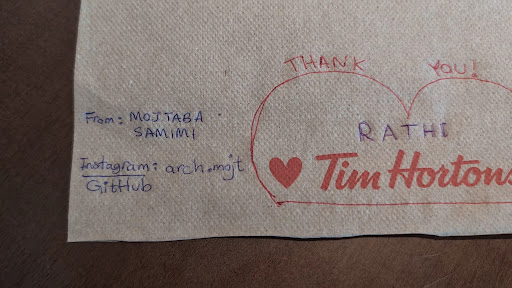 THANK YOU!
From: MOJTABA
SAMIMI
RATHI
Instagram: arch.mojt
GitHub
Tim Hortons